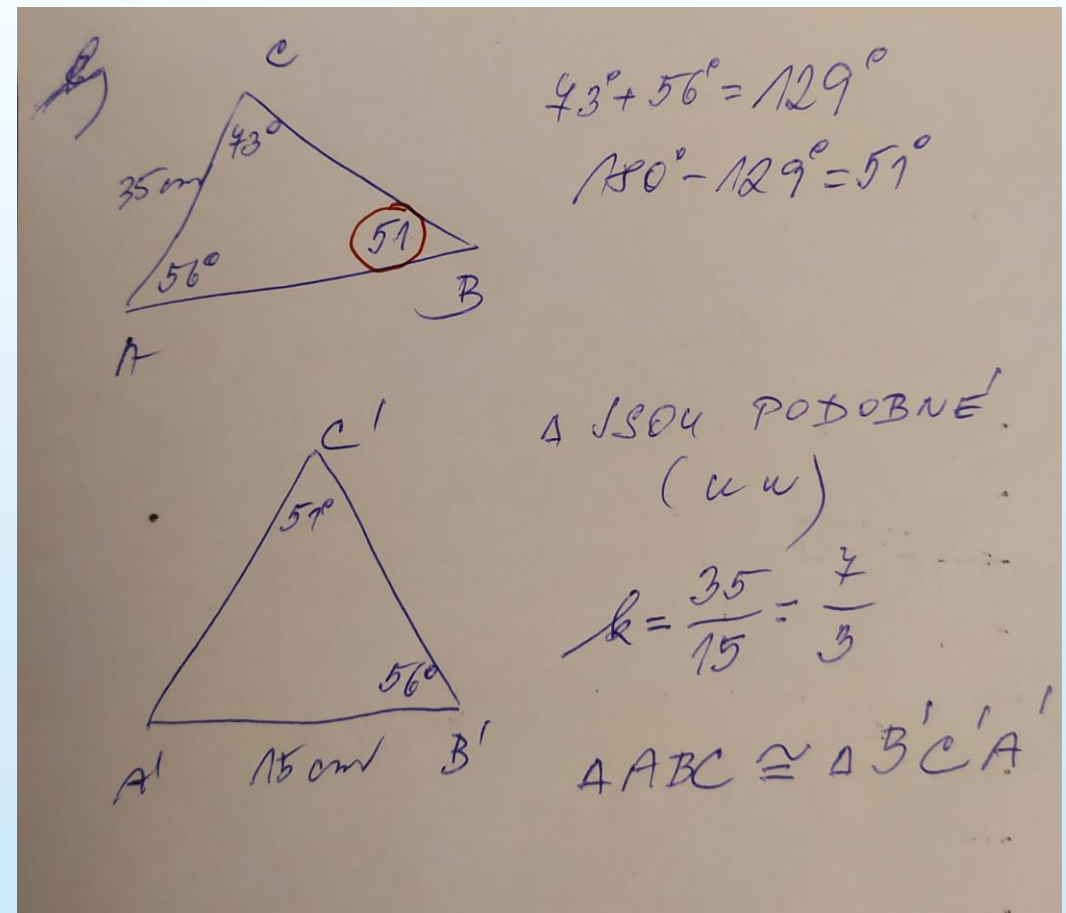 C
73°
35 cm
51
56°
B
A
73° + 56° = 129°
180° - 129° = 51°
C'
51°
56°
A'
15 cm
B'
Δ JSOU PODOBNÉ
(uu)
k = 35/15 = 7/3
Δ ABC ≅ Δ B'C'A'